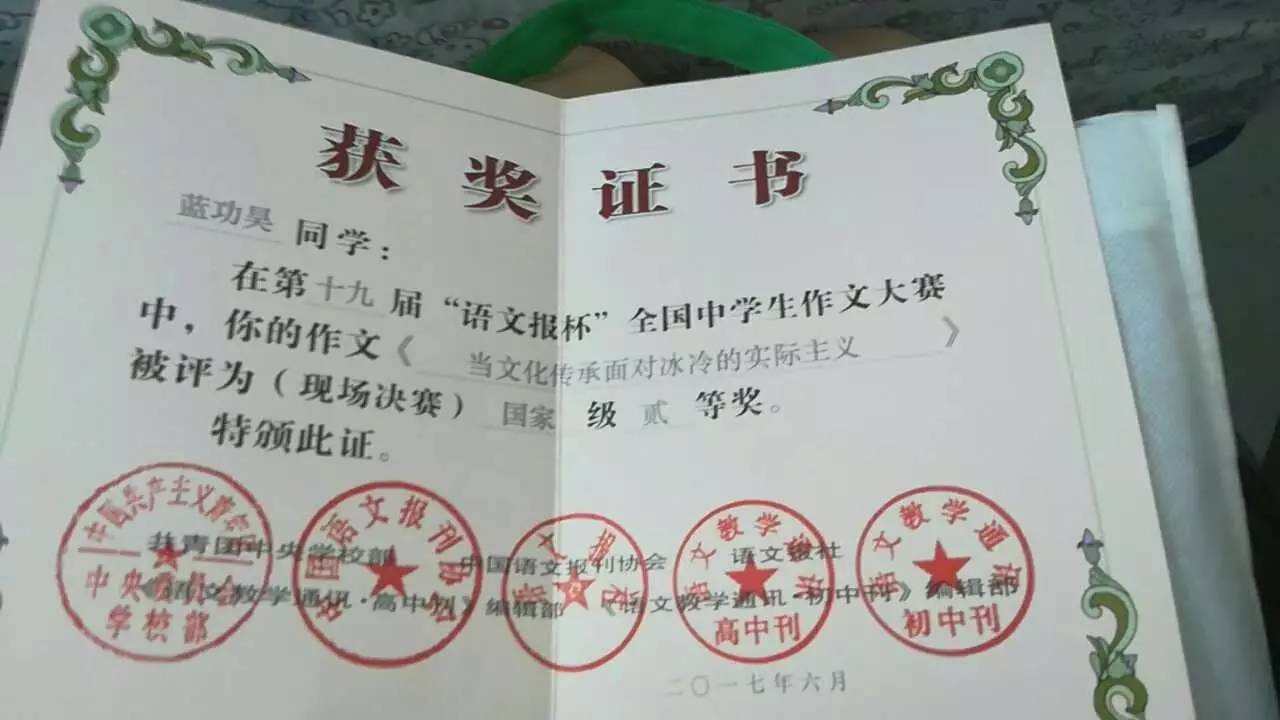 获奖证书
蓝功昊 同学：
在第十九届“语文报杯”全国中学生作文大赛
中，你的作文《当文化传承面对冰冷的实际主义》
被评为（现场决赛）国家级贰等奖。
特颁此证。
共青团中央学校部 中国语文报刊协会 语文报社
《语文教学通讯·高中刊》编辑部 《语文教学通讯·初中刊》编辑部
中国共产主义青年团
中央委员会
学校部
中国语文报刊协会
语文报社
语文教学通讯
高中刊
语文教学通讯
初中刊
二〇一七年六月